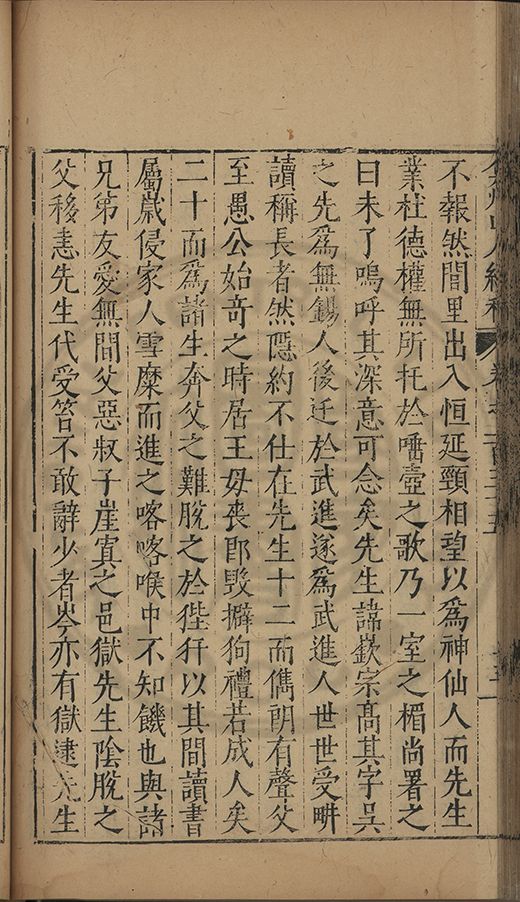 不報然閭里出入恒延頸相望以爲神仙人而先生
業杜德權無所托於唾壺之歌乃一室之楣尚署之
曰未了嗚呼其深意可念矣先生諱嶔宗髙其字吳
之先爲無錫人後迁於武進遂爲武進人世世受畊
讀稱長者然隱約不仕在先生十二而儁朗有聲父
至愚公始奇之時居王毋丧卽毁擗狥禮若成人矣
二十而爲諸生奔父之難脫之於狴犴以其間讀書
屬歲侵家人雪糜而進之喀喀喉中不知饑也與諸
兄弟友愛無間父惡叔子崖寘之邑獄先生陰脫之
父移恚先生代受笞不敢辭少者岑亦有獄逮先生